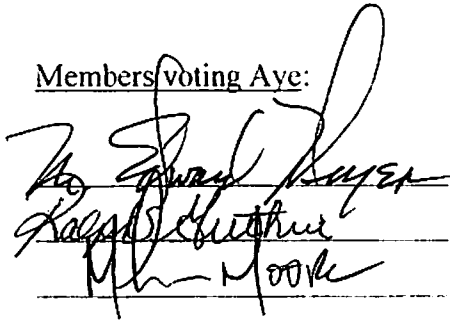 Members voting Aye:
Edward
Ralph Guthrie
Moore